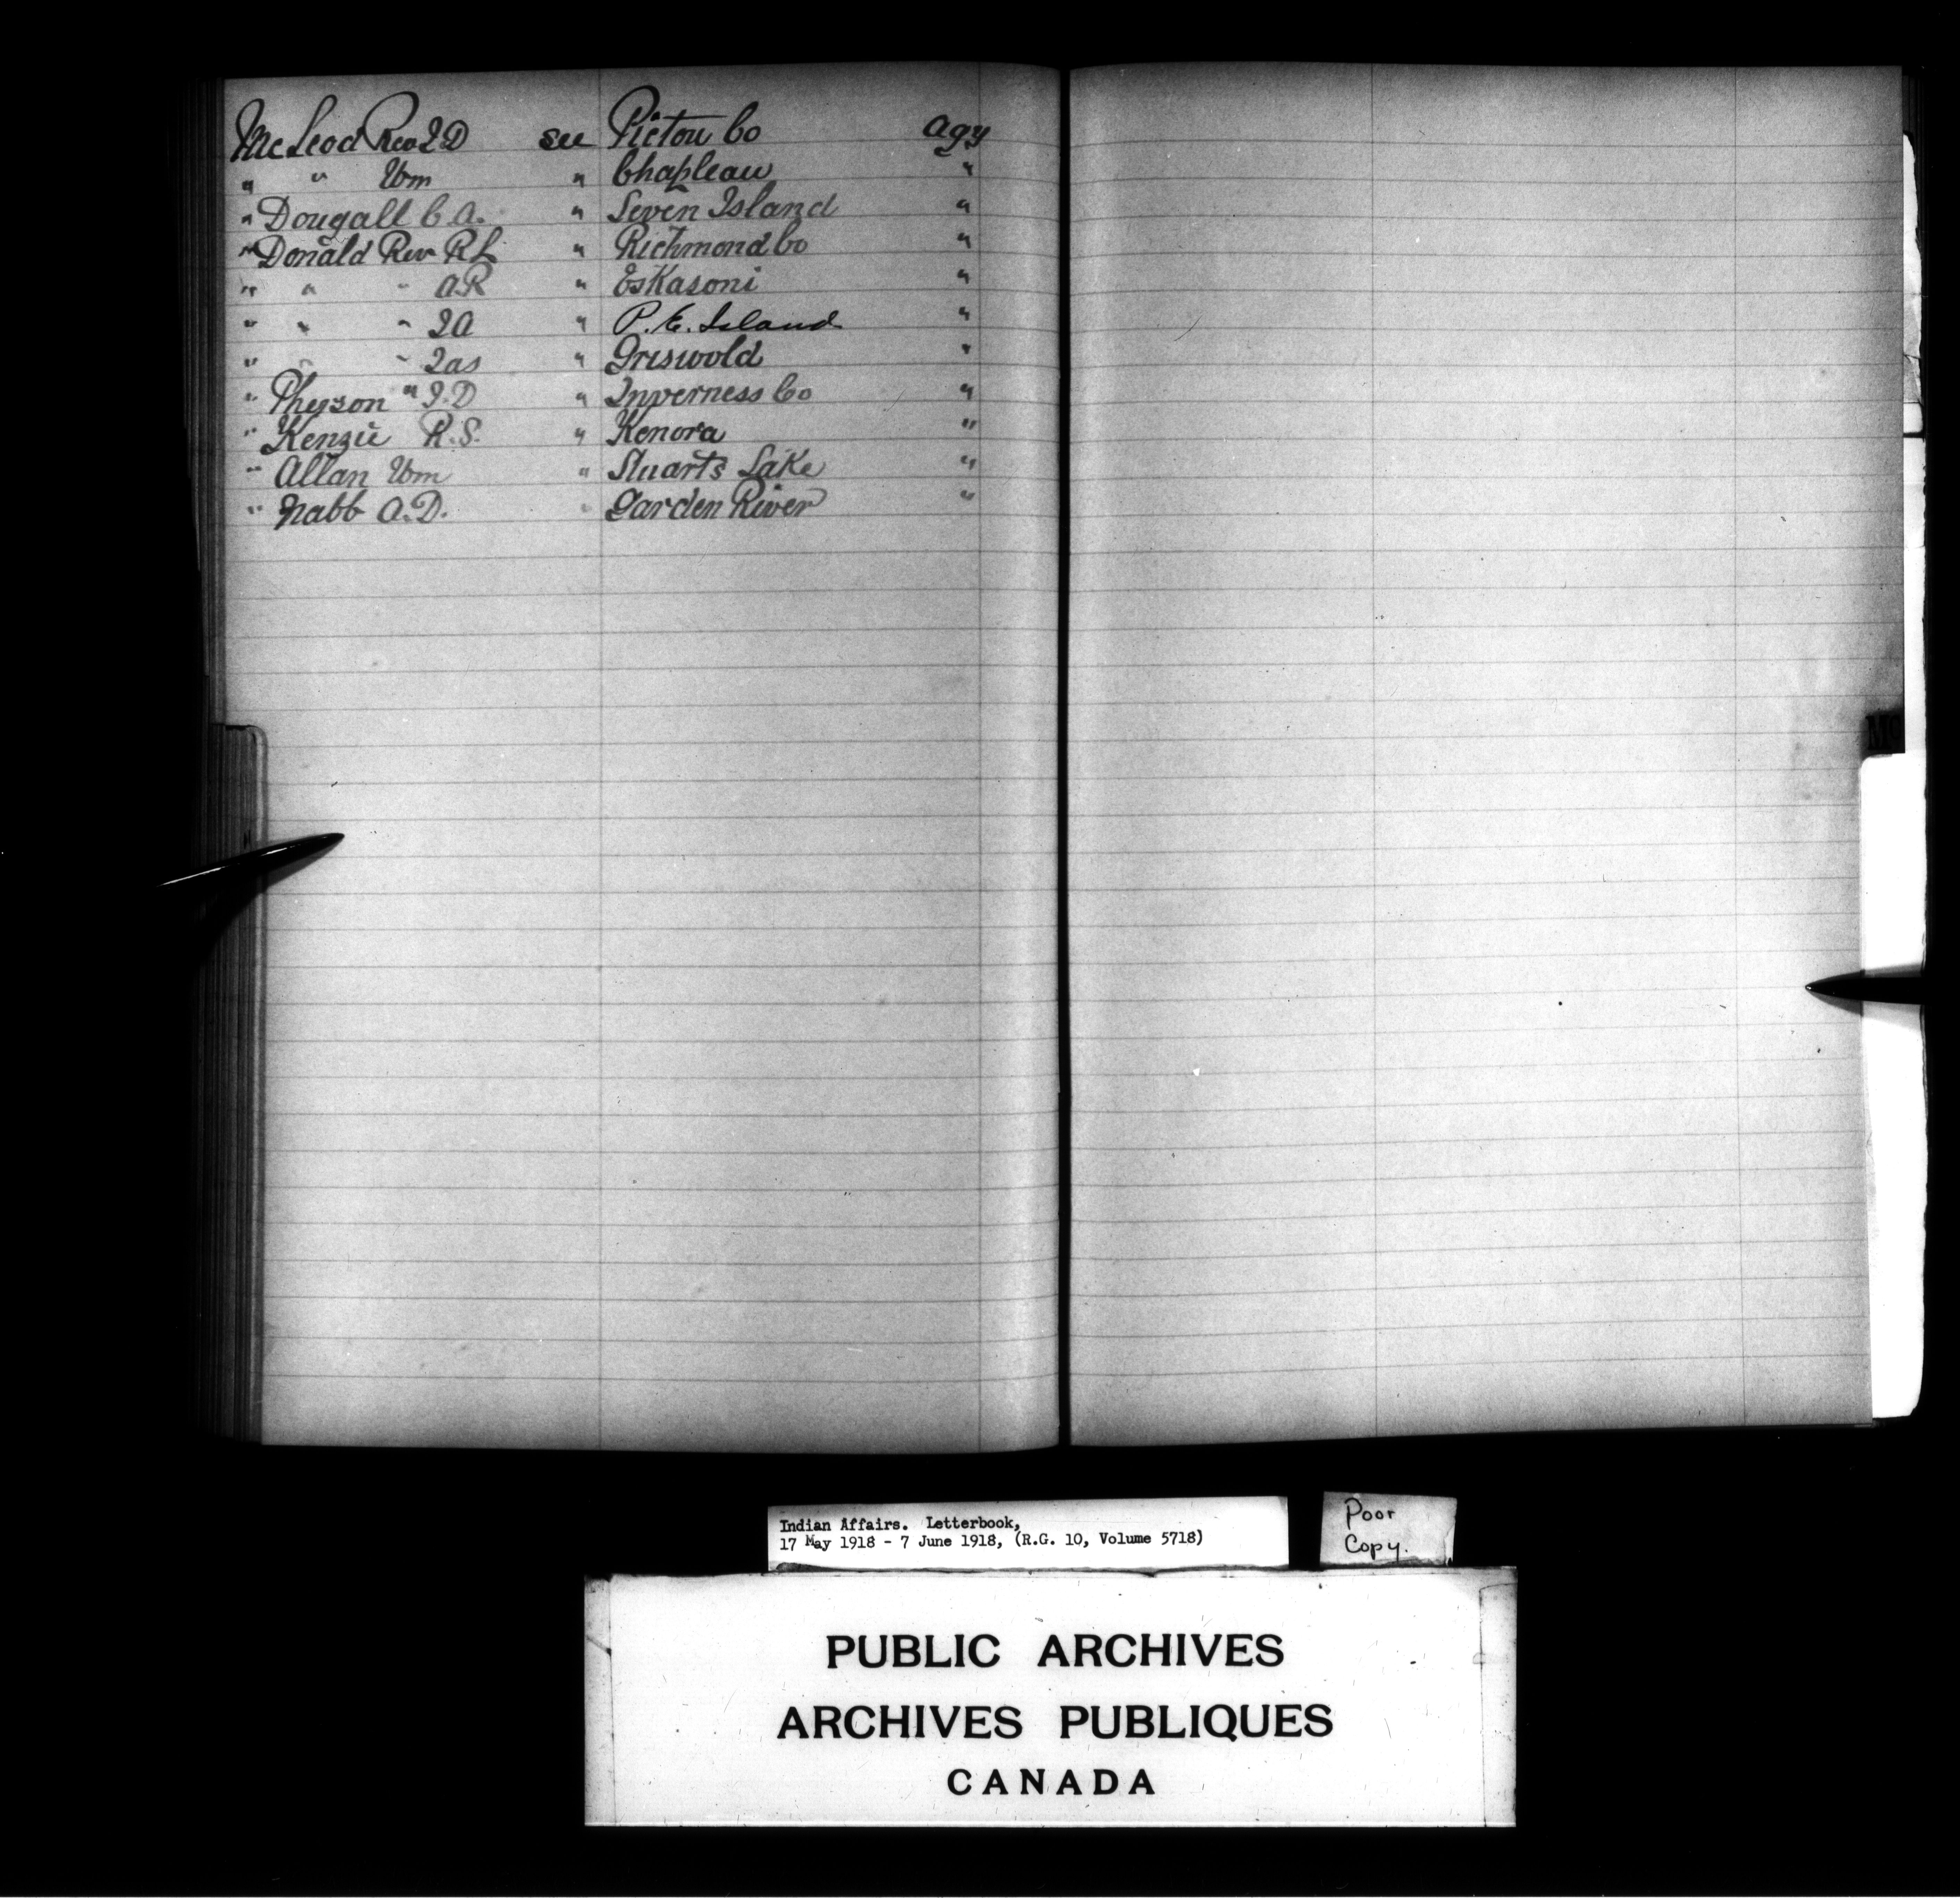 McLeod Rev J D see Pictou Co Agy
" " Wm " Chapleau "
" Dougall C. A. " Seven Island "
" Donald Rev R L " Richmond Co "
" " " A R " Eskasoni "
" " " J A " P. E. Island "
" " " Jas " Griswold "
" Pherson " J. D " Inverness Co "
" Kenzie R. S. " Kenora "
" Allan Wm " Stuarts Lake "
" Nabb A. D. " Garden River "
MC
Indian Affairs. Letterbook,
17 May 1918 - 7 June 1918, (R.G. 10, Volume 5718)
Poor
Copy.
PUBLIC ARCHIVES
ARCHIVES PUBLIQUES
CANADA